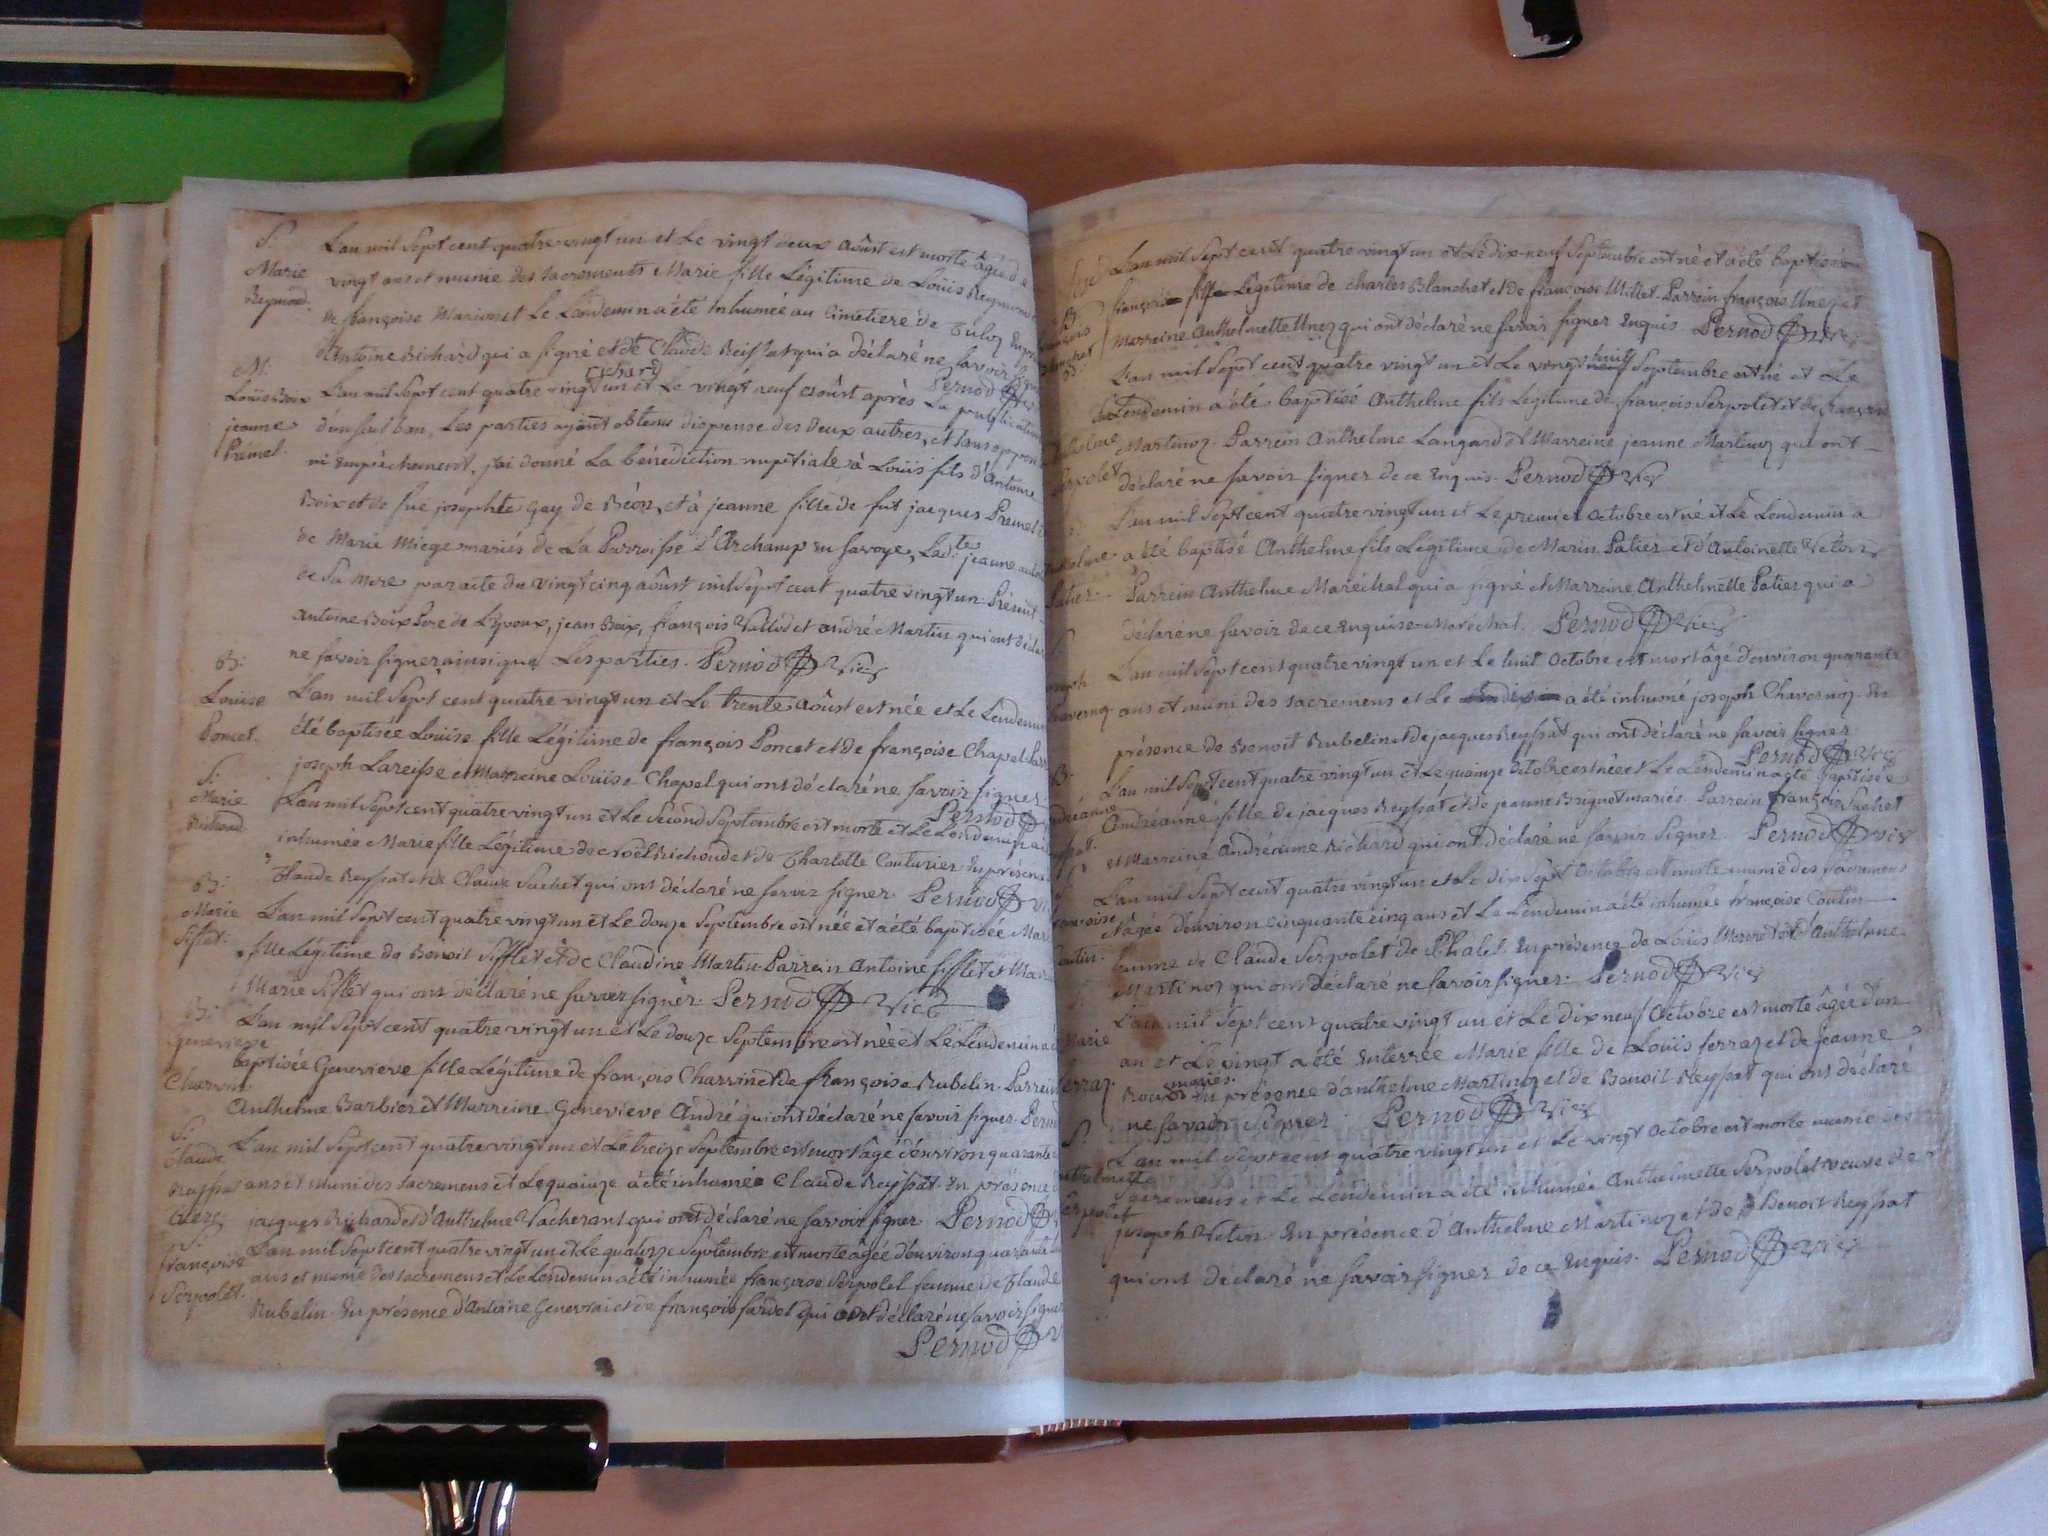 S.
Marie
Reymond.
L'an mil sept cent quatre-vingt un et le vingt deux Aoûst est morte âgée de
vingt ans et munie des sacrements Marie fille Légitime de Loüis Reymond
de françoise Mariin et le Lendemin a été Inhumée au Cimetiere de
d'Antoine Richard qui a signé et de Claude Reissat qui a déclaré ne savoir signer
richard Pernod Vic
M.
Loüis Boix
jeanne
Prémel.
L'an mil sept cent quatre vingt un et Le vingt neuf aoûst après La publication
d'un seul ban, Les parties ajant obtenu dispense des deux autres, et sans
ni Empêchement, j'ai donné La bénédiction nuptiale à Loüis fils d'Antoine
Boix et de fuë josephte Gay de Béon, et à jeanne fille de fut jacques Premel
de Marie Miege mariés de La Parroisse d'Archamp en Savoye, Ladte jeanne
de Sa Mere par acte du vingt cinq aôust mil sept cent quatre vingt un. Présent
Antoine Boix Pere de L'Epoux, jean Boix, françois Vallod et andré Martin qui ont décla
ne savoir signer ainsi que Les parties. Pernod Vic
B:
Louise
Poncet.
L'an mil sept cent quatre vingt un et Le trente Aoûst est née et Le Lendemin
été baptisée Louïse fille Légitime de françois Poncet et de françoise Chapel
joseph Lareisse et Marreine Louïse Chapel qui ont déclaré ne savoir signer
Pernod
S:
Marie
Richond
L'an mil sept cent quatre vingt un et Le Second Septembre est morte et Le Lendemin
inhumée Marie fille Légitime de Noël Richond et de Charlotte Couturier En présence
Claude Reyssat et de Claude Suchet qui ont déclaré ne savoir signer Pernod
B:
Marie
Sifflet.
L'an mil sept cent quatre vingt un et Le douze Septembre est née et a été baptisée
fille Légitime de Benoit Sifflet et de Claudine Martin Parrein Antoine Sifflet et
Marie Sifflet qui ont déclaré ne savoir signer. Pernod Vic
B:
Genevieve
Charvin
L'an mil sept cent quatre vingt un et Le douze Septembre est née et Le Lendemin a
baptisée Genevieve fille Légitime de françois Charvin et de françoise Rubelin. Parrein
Anthelme Barbier et Marreine Genevieve André qui ont déclaré ne savoir signer. Pernod
S:
Claude
Reyssat
L'an mil sept cent quatre vingt un et Le treize Septembre est mort âgé d'environ quarante
ans et muni des sacremens et Le quainze a été inhumée Claude Reyssat. En présence
jacques Richard et d'Anthelme Vacherant qui ont déclaré ne savoir signer Pernod
S:
françoise
Serpolet.
L'an mil sept cent quatre vingt un et Le quatorze Septembre est morte âgée d'environ quarante
ans et munie des sacremens et Le Lendemin a été inhumée françoise Serpolet femme de Claude
Rubelin. En présence d'Antoine Genevrai et de françois fardet qui ont déclaré ne savoir signer
Pernod
B:
L'an mil sept cent quatre vingt un et Le dix-neuf Septembre est né et a été baptisé
françois fils Légitime de charles Blanchet et de françoise Millet Parrein françois Unez et
Marreine Anthelmette Unez qui ont déclaré ne savoir signer Enquis Pernod Vic
L'an mil sept cent quatre vingt un et Le vingt huit Septembre est né et Le
Lendemin a été baptisé Anthelme fils Légitime de françois Serpolet et de françoise
Martinoz. Parrein Anthelme Langard et Marreine jeanne Martinoz qui ont
déclaré ne savoir signer de ce Enquis. Pernod Vic
L'an mil sept cent quatre vingt un et Le premier Octobre est né et Le Lendemin a
a été baptisé Anthelme fils Légitime de Marin Patier et d'Antoinette Veton
Patier.
Parrein Anthelme Maréchal qui a signé et Marreine Anthelmette Patier qui a
déclaré ne savoir de ce Enquise. Maréchal. Pernod Vic
S.
L'an mil sept cent quatre vingt un et Le huit Octobre est mort âgé d'environ quarante
ans et muni des sacremens et Le a été inhumé joseph Chavernoz. En
présence de Benoit Rubelin et de jacques Reyssat qui ont déclaré ne savoir signer
Pernod Vic
B.
L'an mil sept cent quatre vingt un et Le quainze Octobre est née et Le Lendemin a été baptisée
Andréanne fille de jacques Reyssat et de jeanne Briquet mariés. Parrein françois Suchet
et Marreine Andréanne Richard qui ont déclaré ne savoir signer. Pernod Vic
S
L'an mil sept cent quatre vingt un et Le dix sept Octobre est morte munie des sacremens
et âgée d'environ cinquante cinq ans et Le Lendemin a été inhumée françoise Coutin
femme de Claude Serpolet de Chalel. En présence de Louis et d'Anthelme
Martinoz qui ont déclaré ne savoir signer. Pernod Vic
S.
Marie
ferraz.
L'an mil sept cent quatre vingt un et Le dix neuf Octobre est morte âgée d'un
an et Le vingt a été Enterrée Marie fille de Loüis ferraz et de jeanne
Roux mariés. En présence d'anthelme Martinoz et de Benoit Reyssat qui ont déclaré
ne savoir signer. Pernod Vic
S.
L'an mil sept cent quatre vingt un et Le vingt Octobre est morte munie des
sacremens et Le Lendemin a été inhumée Anthelmette Serpolet veuve de
joseph Veton. En présence d'Anthelme Martinoz et de Benoit Reyssat
qui ont déclaré ne savoir signer de ce Enquis. Pernod Vic